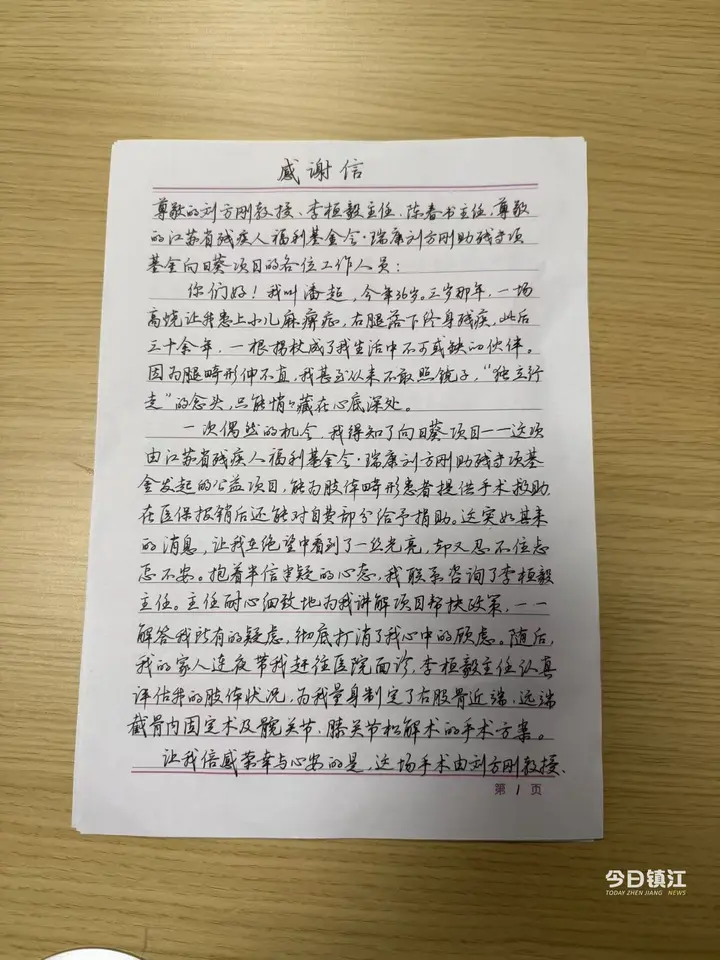 感谢信
尊敬的刘方刚教授、李桓毅主任、陈春书主任,尊敬
的江苏省残疾人福利基金会·瑞康刘方刚助残专项
基金向日葵项目的各位工作人员:
你们好!我叫潘超,今年36岁。三岁那年,一场
高烧让我患上小儿麻痹症,右腿落下终身残疾,此后
三十余年,一根拐杖成了我生活中不可或缺的伙伴。
因为腿畸形伸不直,我甚至从来不敢照镜子,“独立行
走”的念头,只能悄々藏在心底深处。
一次偶然的机会,我得知了向日葵项目——这项
由江苏省残疾人福利基金会·瑞康刘方刚助残专项基
金发起的公益项目,能为肢体畸形患者提供手术救助,
在医保报销后还能对自费部分给予捐助。这突如其来
的消息,让我在绝望中看到了一丝光亮,却又忍不住忐
忑不安。抱着半信半疑的心态,我联系咨询了李桓毅
主任。主任耐心细致地为我讲解项目帮扶政策,一一
解答我所有的疑虑,彻底打消了我心中的顾虑。随后,
我的家人连夜带我赶往医院面诊,李桓毅主任认真
评估我的肢体状况,为我量身制定了右股骨近端、远端
截骨内固定术及髋关节、膝关节松解术的手术方案。
让我倍感荣幸与心安的是,这场手术由刘方刚教授、
第 1 页
今日镇江
TODAY ZHEN JIANG NEWS